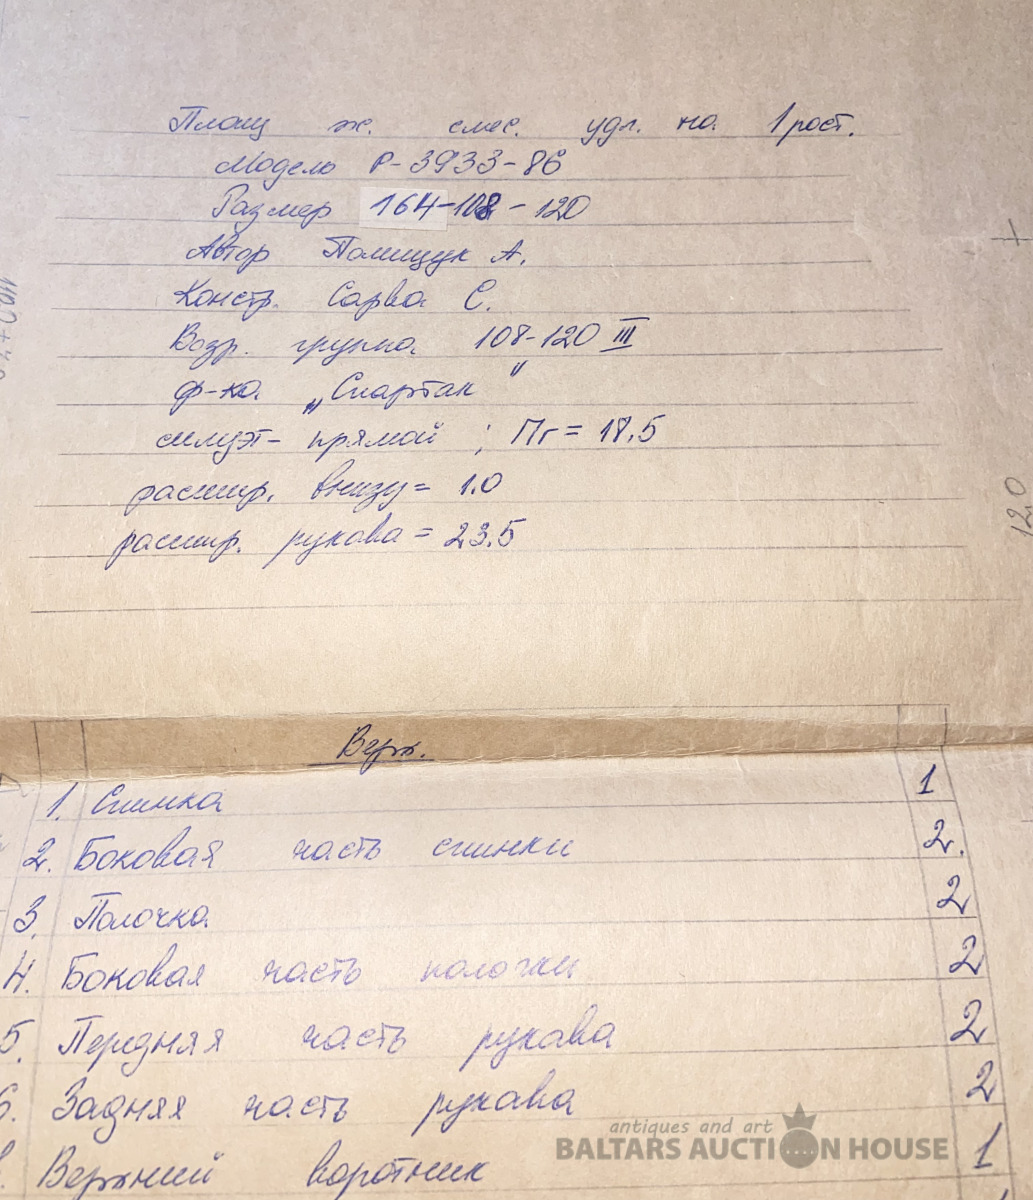 Плащ ж. смес. удл. на 1 рост.
Модель Р-3933-86
Размер 164-108-120
Автор Полищук А.
Констр. Сарва С.
Возр. группа 108-120 III
ф-ка „Спартак"
силуэт- прямой ; Пг = 17.5
расшир. внизу = 1.0
расшир. рукава = 23.5
12.0
Верх.
1. Спинка 1
2. Боковая часть спинки 2.
3. Полочка 2
4. Боковая часть полочки 2
5. Передняя часть рукава 2
6. Задняя часть рукава 2
Верхний воротник 1
antiques and art
BALTARS AUCTION HOUSE